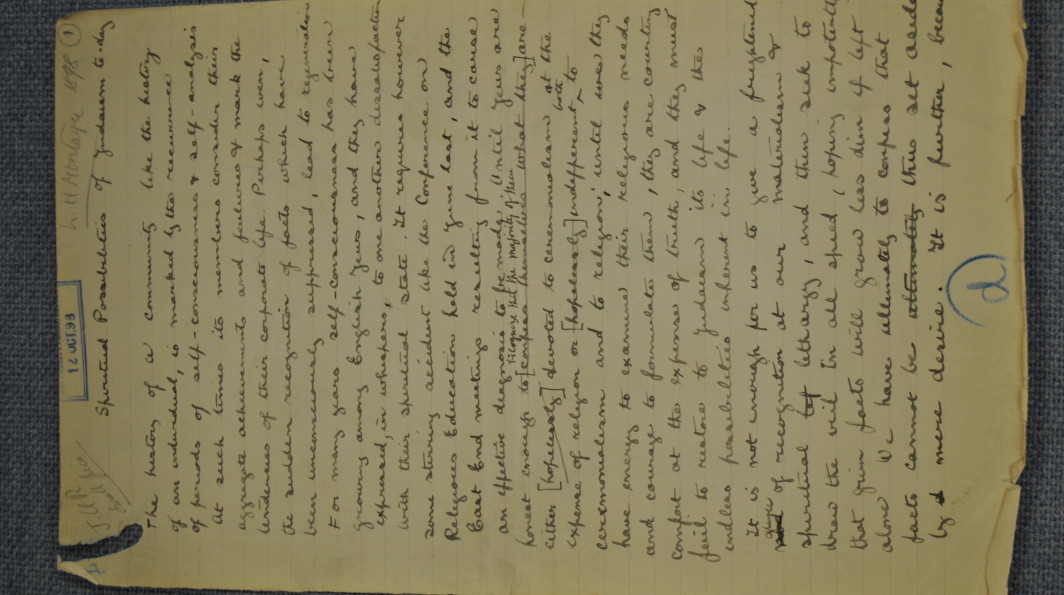 L. H. Montagu 1898 ①
12 OCT.93
Spiritual Possibilities of Judaism to-day
The history of a community like the history
of an individual, is marked by the recurrence
of periods of self-consciousness & self-analysis
At such times its members consider their
aggregate achievements and failures & mark the
tendencies of their corporate life. Perhaps even,
the sudden recognition of facts which have
been unconsciously suppressed, lead to regeneration
For many years self-consciousness has been
growing among English Jews, and they have
expressed, in whispers, to one another dissatisfaction
with their spiritual state. It requires however
some stirring accident like the Conference on
Religious Education held in June last, and the
East End meetings resulting from it to cause
an effective diagnosis to be made. Until Jews are
recognise that the majority of them
honest enough to [confess themselves what they] are -
either [hopelessly] devoted to ceremonialism at the
expense of religion or [hopelessly] indifferent both to
ceremonialism and to religion; until
have energy to examine their religious needs
and courage to formulate them, they are courting
comfort at the expense of truth, and they must
fail to restore to Judaism its life & the
endless possibilities inherent in life.
It is not enough for us to give a frightened
glance of recognition at our materialism &
spiritual lethargy, and then seek to
draw the veil in all speed, hoping impotently
that grim facts will grow less dim if left
alone We have ultimately to confess that
facts cannot be thus set aside
by mere desire. It is further,
d